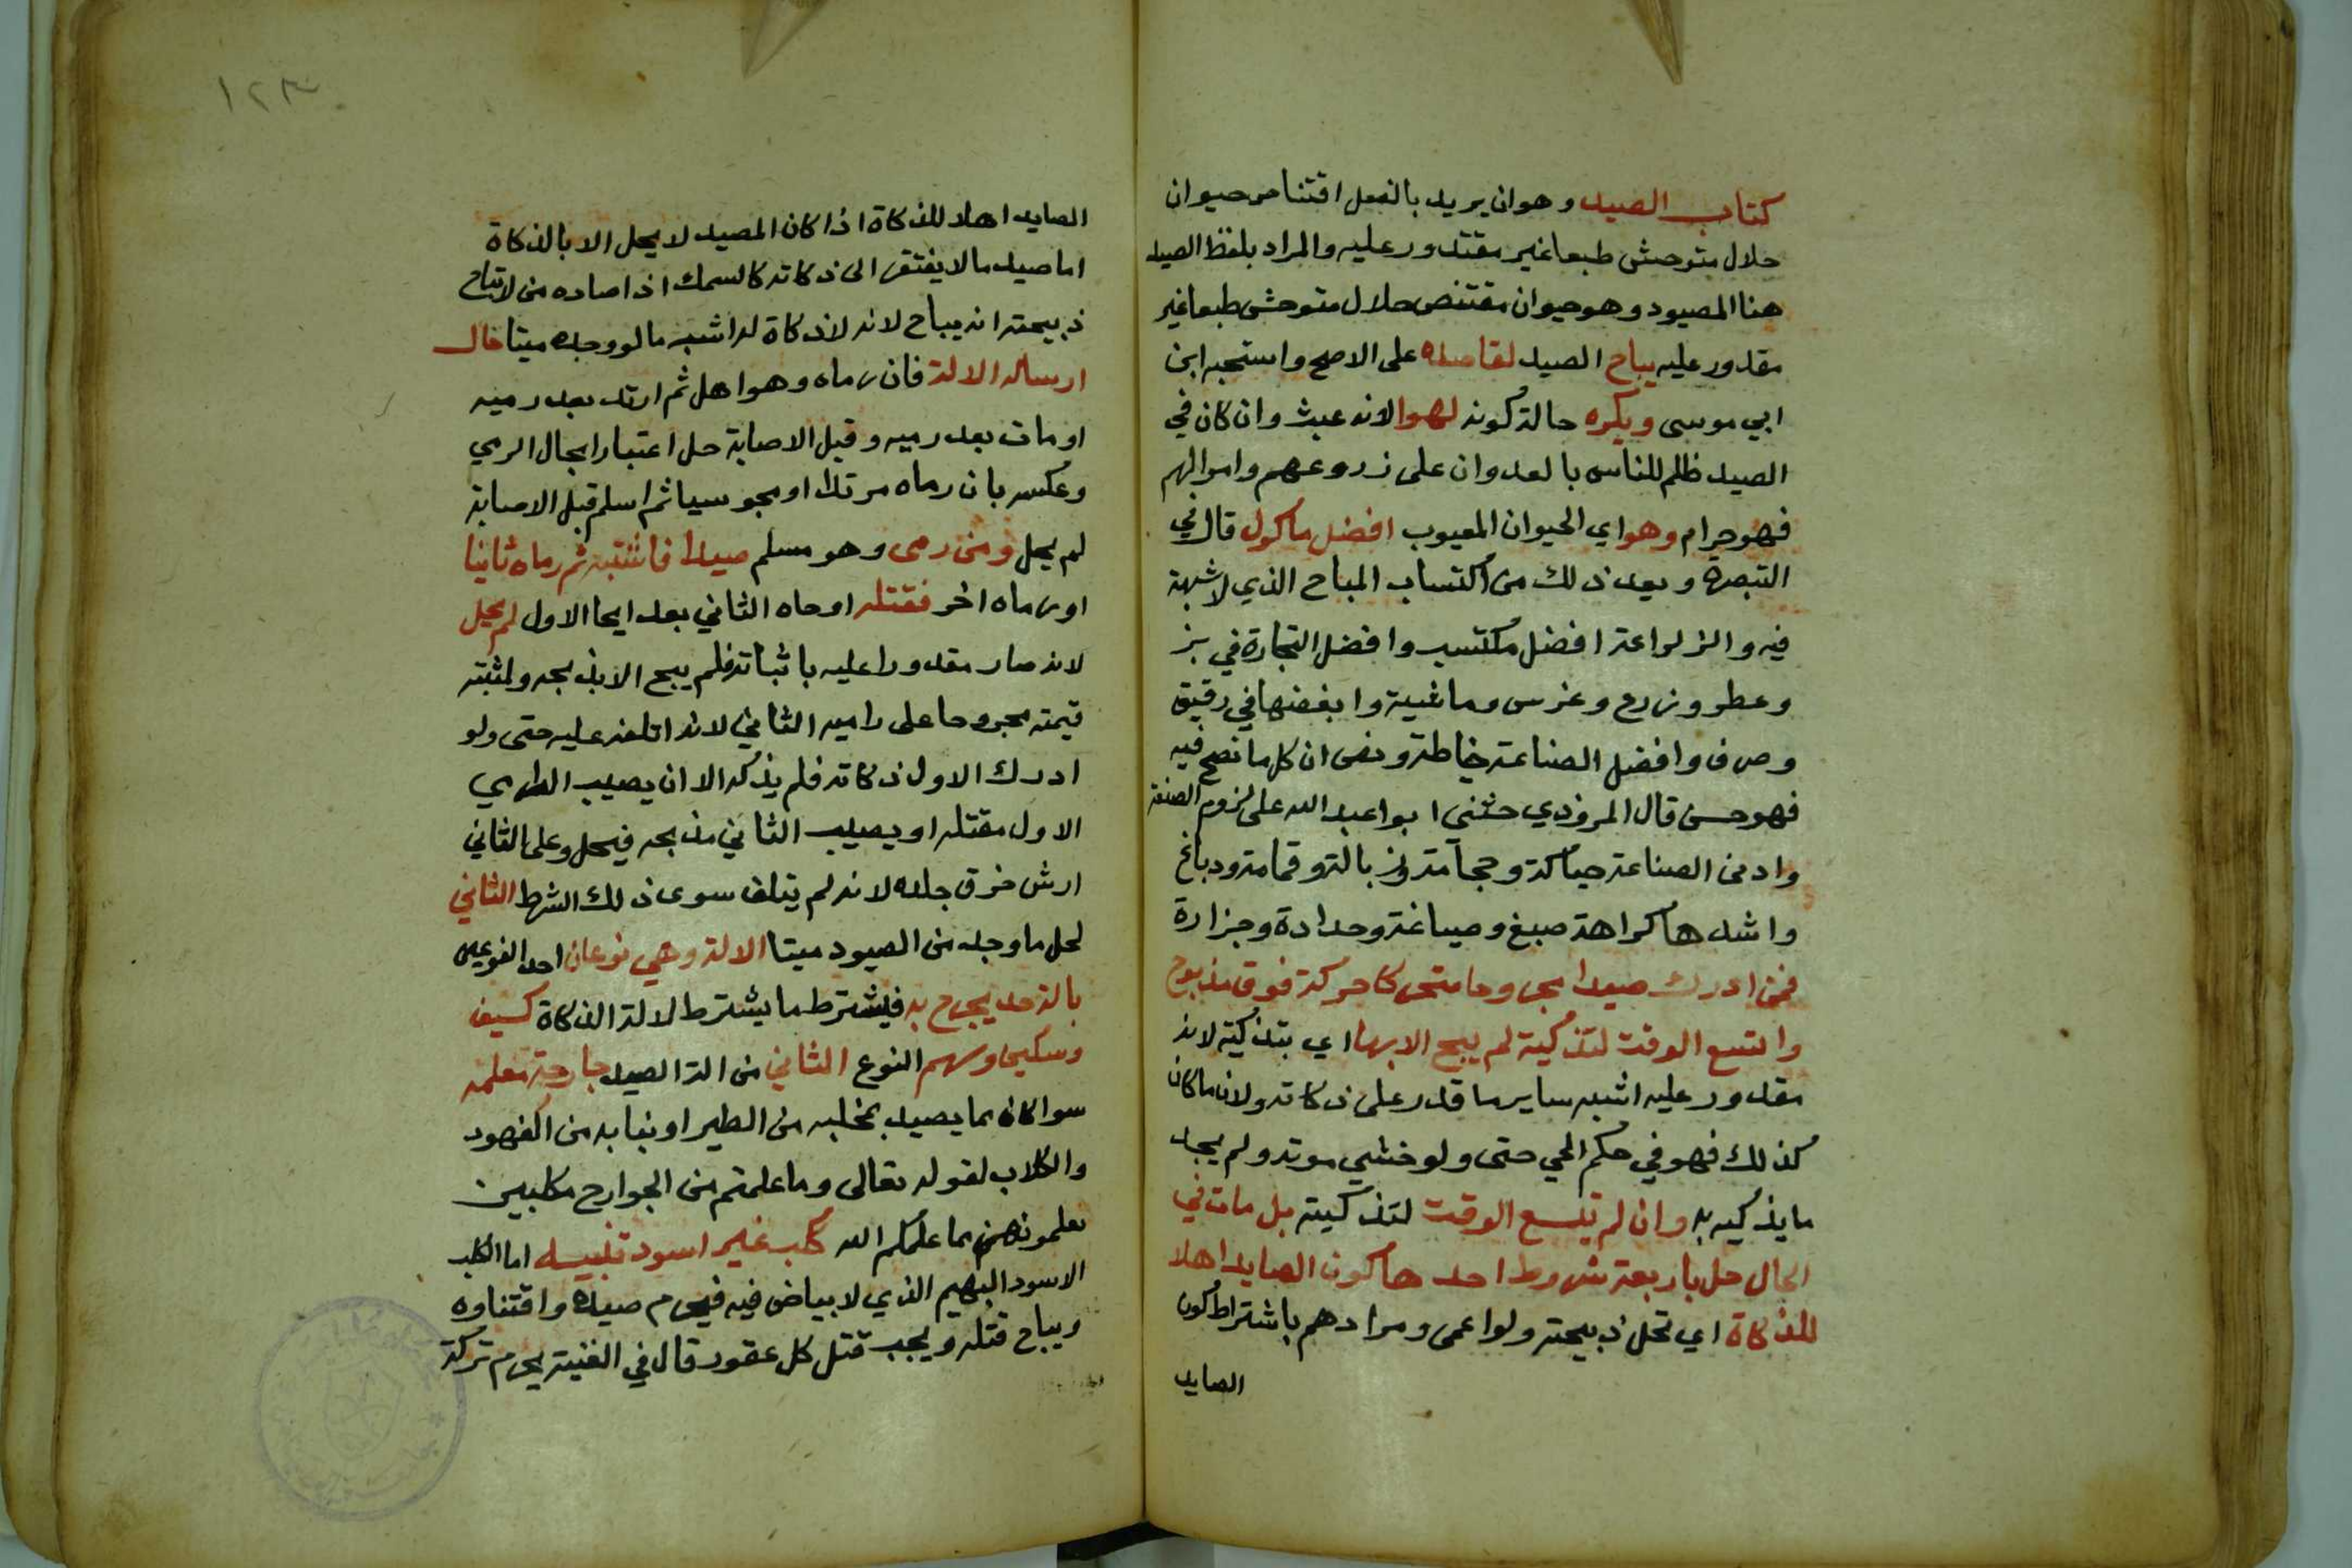 كتاب الصيد وهو ان يريد بالفعل اقتناص حيوان
حلال متوحش طبعا غير مقتدور عليه والمراد بلفظ الصيد
هنا المصيود وهو حيوان مقتنص حلال متوحش طبعا غير
مقدور عليه يباح الصيد لقاصده على الاصح واستحبه ابن
ابي موسى ويكره حالة كونه لهوا لانه عبث وان كان في
الصيد ظلم للناس بالعدوان على زروعهم واموالهم
فهو حرام وهو اي الحيوان المعيوب افضل ماكول قال في
التبصرة ويعد ذلك من اكتساب المباح الذي لا شبهة
فيه والزراعة افضل مكتسب وافضل التجارة في بز
وعطر وزرع وغرس وماشية وابغضها في رقيق
وصرف وافضل الصناعة خياطة ونص ان كل ما نصح فيه
فهو حسن قال المروذي حثني ابوا عبد الله على لزوم الصنعة
وادنى الصناعة حياكة وحجامة وزبالة وقمامة ودباغ
واشدها كراهة صبغ وصياغة وحدادة وجزارة
فمن ادرك صيدا مجروحا متحركا حركة فوق مذبوح
واتسع الوقت لتذكية لم يبح الا بها اي بتذكية لانه
مقدور عليه اشبه ساير ما قدر على ذكاته ولان ما كان
كذلك فهو في حكم الحي حتى ولو خشي موته ولم يجد
ما يذكيه به وان لم تيسع الوقت لتذكيته بل مات في
الحال حل باربعة شروط احدها كون الصايد اهلا
للذكاة اي تحل ذبيحته ولو اعمى ومرادهم باشتراط كون
الصايد
١٢٣
الصايد اهلا للذكاة اذا كان المصيد لا يحل الا بالذكاة
اما صيد ما لا يفتقر الى ذكاته كالسمك اذا صاده من لا تباح
ذبيحته انه يباح لانه لا ذكاة له اشبه ما لو وجده ميتا حال
ارساله الالة فان رماه وهو اهل ثم ارتد بعد رميه
او مات بعد رميه وقبل الاصابة حل اعتبارا بحال الرمي
وعكسه بان رماه مرتدا او مجوسيا ثم اسلم قبل الاصابة
لم يحل ومن رمى وهو مسلم صيدا فاثبته ثم رماه ثانيا
او رماه اخر فقتله اوحاه الثاني بعد ايحا الاول لم يحل
لانه صار مقدورا عليه باثباته فلم يبح الا بذبحه ولمثبته
قيمته مجروحا على راميه الثاني لانه اتلفه عليه حتى ولو
ادرك الاول ذكاته فلم يذكه الا ان يصيب الرامي
الاول مقتله او يصيب الثاني مذبحه فيحل وعلى الثاني
ارش خرق جلده لانه لم يتلف سوى ذلك الشرط الثاني
لحل ما وجد من الصيود ميتا الالة وهي نوعان احد النوعين
بالة حد يجرح به فيشترط ما يشترط لالة الذكاة كسيف
وسكين وسهم النوع الثاني من الة الصيد جارحة معلمه
سوا كان مما يصيد بمخلبه من الطير او بنابه من الفهود
والكلاب لقوله تعالى وما علمتم من الجوارح مكلبين
تعلمونهن مما علمكم الله كلب غير اسود تنبيه اما الكلب
الاسود البهيم الذي لا بياض فيه فيحرم صيده واقتناوه
ويباح قتله ويجب قتل كل عقور قال في الغنية يحرم تركة